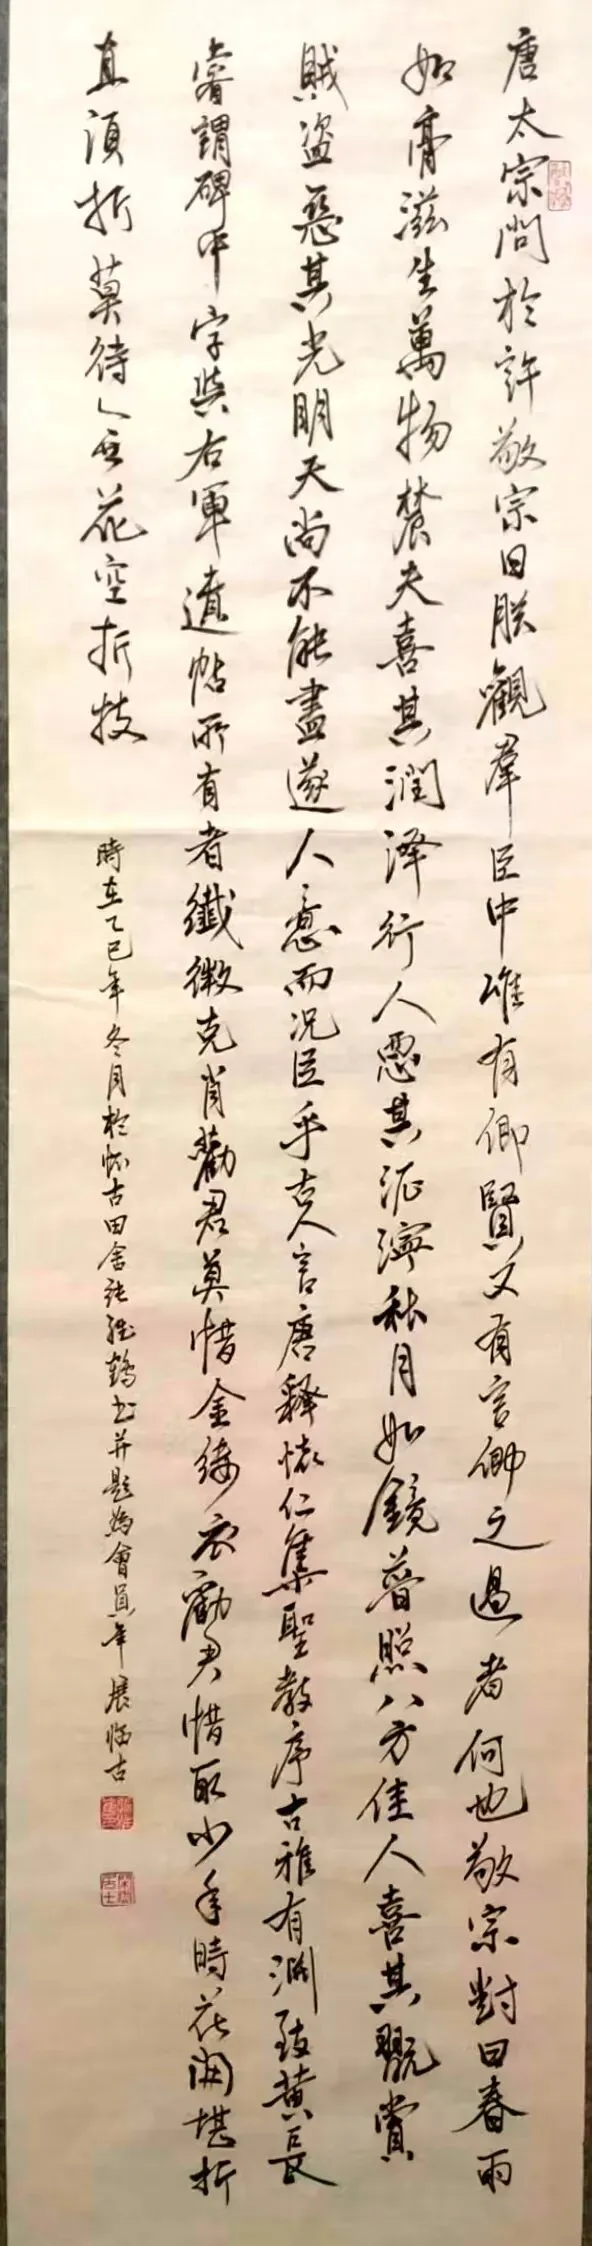 唐太宗問於許敬宗曰朕觀羣臣中唯有卿賢又有言卿之過者何也敬宗對曰春雨
如膏滋生萬物農夫喜其潤澤行人惡其泥濘秋月如鏡普照八方佳人喜其翫賞
賊盜惡其光明天尚不能盡遂人意而況臣乎古人言唐釋懷仁集聖教序古雅有淵致黄長
睿謂碑中字與右軍遺帖所有者纖微克肖勸君莫惜金縷衣勸君惜取少年時花開堪折
直須折莫待無花空折枝
時在乙巳年冬月於懷古田舍張鶴書并題為會員年展臨古